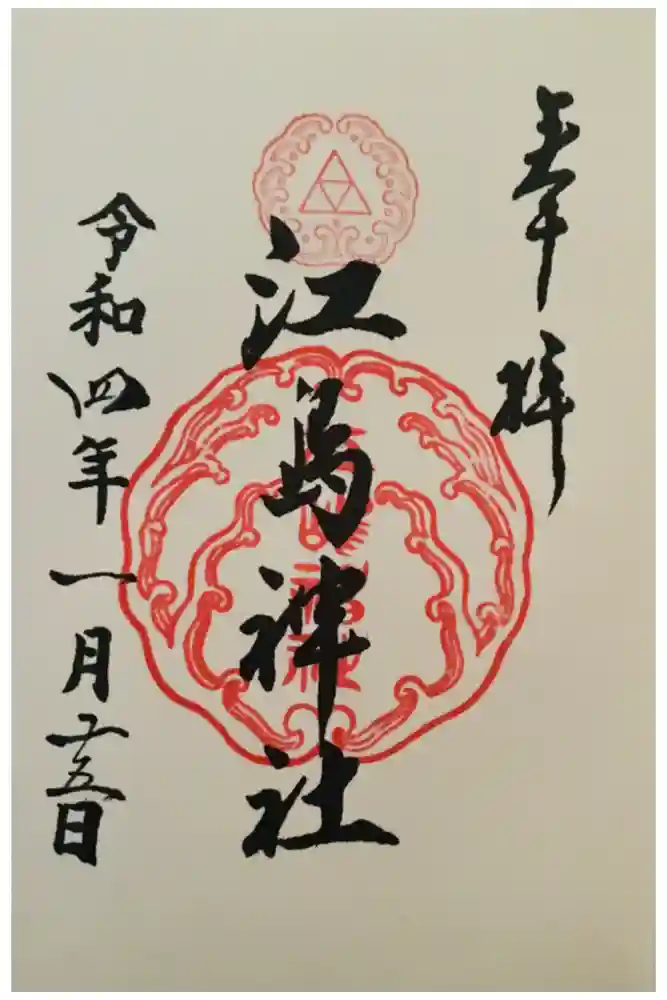 奉拝
江島神社
令和四年一月十五日